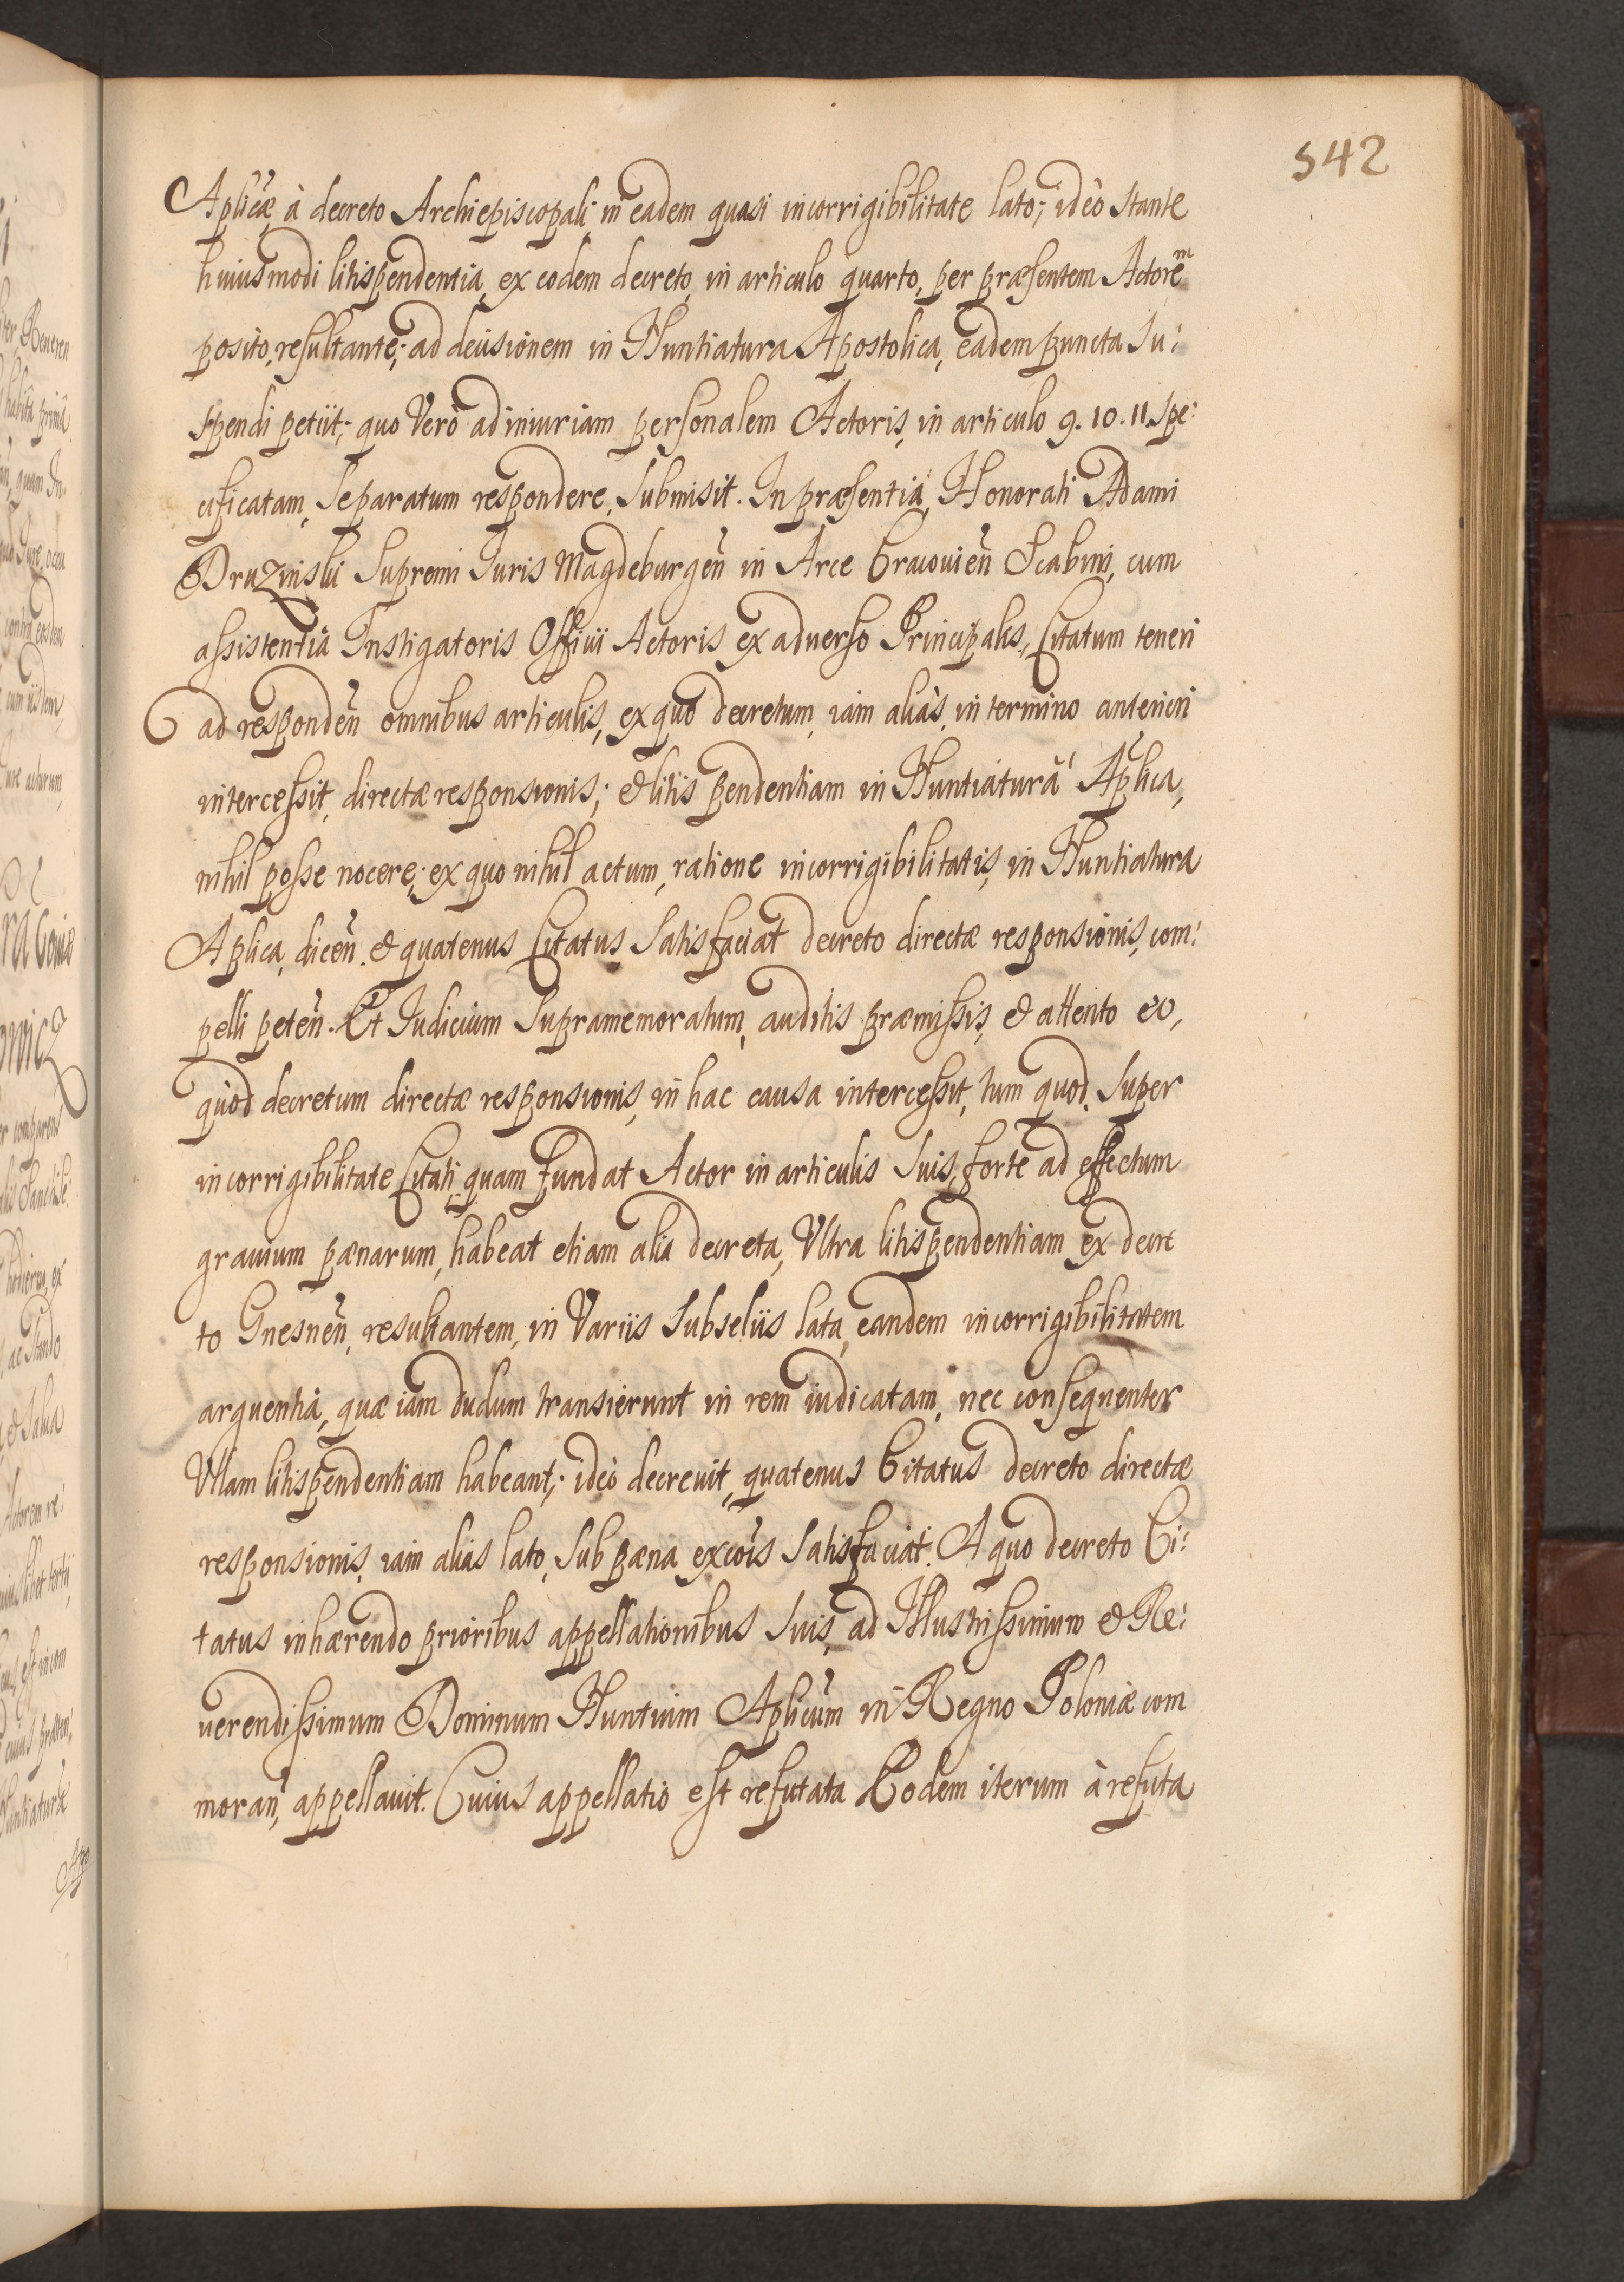 542
Aplicæ, à decreto Archiepiscopali, in eadem quasi incorrigibilitate lato; ideò stante
huiusmodi litispendentia, ex eodem decreto, in articulo quarto, per præsentem Actorem
posito, resultante; ad decisionem in Nuntiatura Apostolica, eadem puncta su:
spendi petiit; quo Verò ad iniuriam personalem Actoris, in articulo 9. 10. 11. spe:
cificatam, Separatum respondere, Submisit. In præsentiâ, Honorati Adami
Druzinski Supremi Iuris Magdeburgeñ in Arce Cracovieñ Scabini, cum
assistentiâ Instigatoris Officii Actoris ex adverso Principalis, Citatum teneri
ad respondeñ omnibus articulis, ex quo decretum, iam aliàs, in termino anteriori
intercessit, directæ responsionis; & litis pendentiam in Nuntiaturâ Aplica,
nihil posse nocere; ex quo nihil actum, ratione incorrigibilitatis, in Nuntiatura
Aplica, diceñ. & quatenus Citatus, Satisfaciat decreto directæ responsionis, com:
pelli peteñ. Et Iudicium Supramemoratum, auditis præmissis, & attento eo,
quòd decretum directæ responsionis, in hac causa intercessit, tum quod, Super
incorrigibilitate Citati, quam fundat Actor in articulis Suis, forte ad effectum
gravium pænarum, habeat etiam alia decreta, Ultra litispendentiam ex decre
to Gnesneñ, resultantem, in Variis Subseliis lata, eandem incorrigibilitatem
arguentia, quæ iam dudum transierunt in rem iudicatam, nec consequenter
Ullam litispendentiam habeant; ideò decrevit, quatenus Citatus decreto directæ
responsionis, iam alias lato, Sub pæna excõis Satisfaciat. A quo decreto Ci:
tatus inhærendo prioribus appellationibus Suis, ad Illustrissimum & Re:
verendissimum Dominum Nuntium Aplicum in Regno Poloniæ com
morañ, appellavit. Cuius appellatio est refutata Eodem iterum à refuta